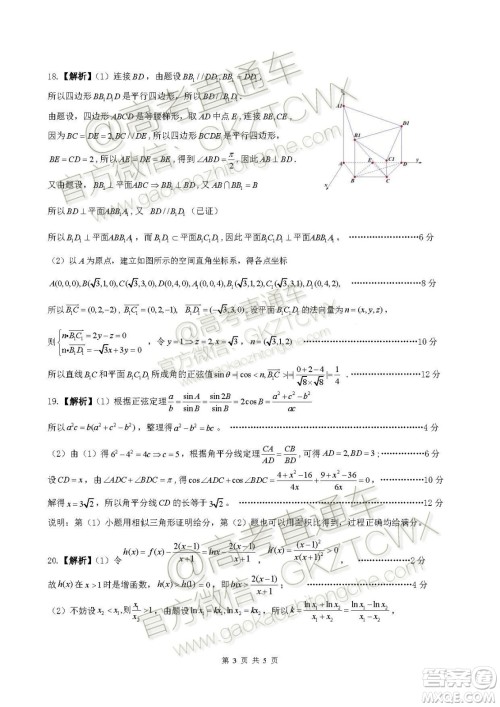 18.【解析】(1) 连接 BD，由题设 BB₁//DD₁,BB₁=DD₁，
所以四边形 BB₁D₁D 是平行四边形，所以 BD//B₁D₁，
由题设，四边形 ABCD 是等腰梯形，取 AD 中点 E，连接 BE,CE.
因为 BC=DE=2,BC//DE，所以四边形 BCDE 是平行四边形，
BE=CD=2，所以 AE=BE=DE，得到 ∠ABD=π/2
又由题设，BB₁⊥平面ABCD⇒BB₁⊥BD，又 AB∩BB₁=B
所以 BD⊥平面ABB₁A₁，又 BD//B₁D₁（已证）
所以 B₁D₁⊥平面ABB₁A₁，而 B₁D₁⊂平面B₁C₁D₁，因此平面B₁C₁D₁⊥平面ABB₁A₁. ………………6分
(2) 以 A 为原点，建立如图所示的空间直角坐标系，得各点坐标
A(0,0,0),B(√3,1,0),C(√3,3,0),D(0,4,0),A₁(0,0,4),B₁(√3,1,2),C₁(√3,3,1),D₁(0,4,2), ………………8分
所以 B₁C=(0,2,-2), B₁C₁=(0,2,-1), B₁D₁=(-√3,3,0)，设平面B₁C₁D₁的法向量为 n=(x,y,z)，
则 {n•B₁C₁=2y-z=0
n•B₁D₁=-√3x+3y=0，令 y=1⇒z=2,x=√3，n=(√3,1,2) ………………10分
所以直线 B₁C 和平面 B₁C₁D₁ 所成角的正弦值 sinθ=|cos<n,B₁C>|=|(0+2-4)/(√8√8)|=1/4. ………………12分
19.【解析】(1) 根据正弦定理 a/b=sinA/sinB=sin2B/sinB=2cosB=(a²+c²-b²)/ac
所以 a²c=b(a²+c²-b²)，整理得 a²-b²=bc. ………………4分
(2) 由 (1) 得 6²-4²=4c⇒c=5，根据角平分线定理 CA/AD=CB/BD，可得 AD=2,BD=3； ………………6分
设 CD=x，由 ∠ADC+∠BDC=π，得 cos∠ADC+cos∠BDC=(4+x²-16)/4x+(9+x²-36)/6x=0 ………………10分
解得 x=3√2，所以角平分线 CD 的长等于 3√2. ………………12分
说明：第 (1) 小题用相似三角形证明给分，第 (2) 题也可以用面积比得到；过程正确均给满分。
20.【解析】(1) 令 h(x)=f(x)-2(x-1)/(x+1)=lnx-2(x-1)/(x+1)，h'(x)=(x-1)²/(x(x+1)²)>0， ………………2分
故 h(x) 在 x>1 时是增函数，h(x)>h(1)=0，即 lnx>2(x-1)/(x+1). ………………4分
(2) 不妨设 x₂<x₁，则 x₁/x₂>1，由题设 lnx₁=kx₁,lnx₂=kx₂，所以 k=(lnx₁+lnx₂)/(x₁+x₂)=(lnx₁-lnx₂)/(x₁-x₂)，
第 3 页 共 5 页
@高考直通车
官方微信：GKZTCWX
www.gaokaozhitongche.com